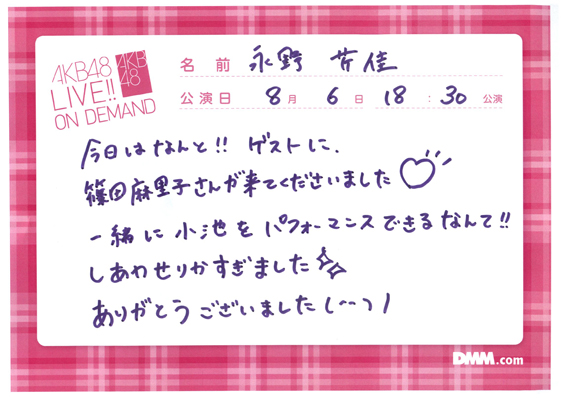 AKB48
LIVE!!
ON DEMAND
AKB
48
名前 永野 芹佳
公演日 8月 6日 18:30 公演
今日はなんと!! ゲストに、
篠田麻里子さんが来てくださいました♡
一緒に小池をパフォーマンスできるなんて!!
しあわせりかすぎました
ありがとうございました
DMM.com